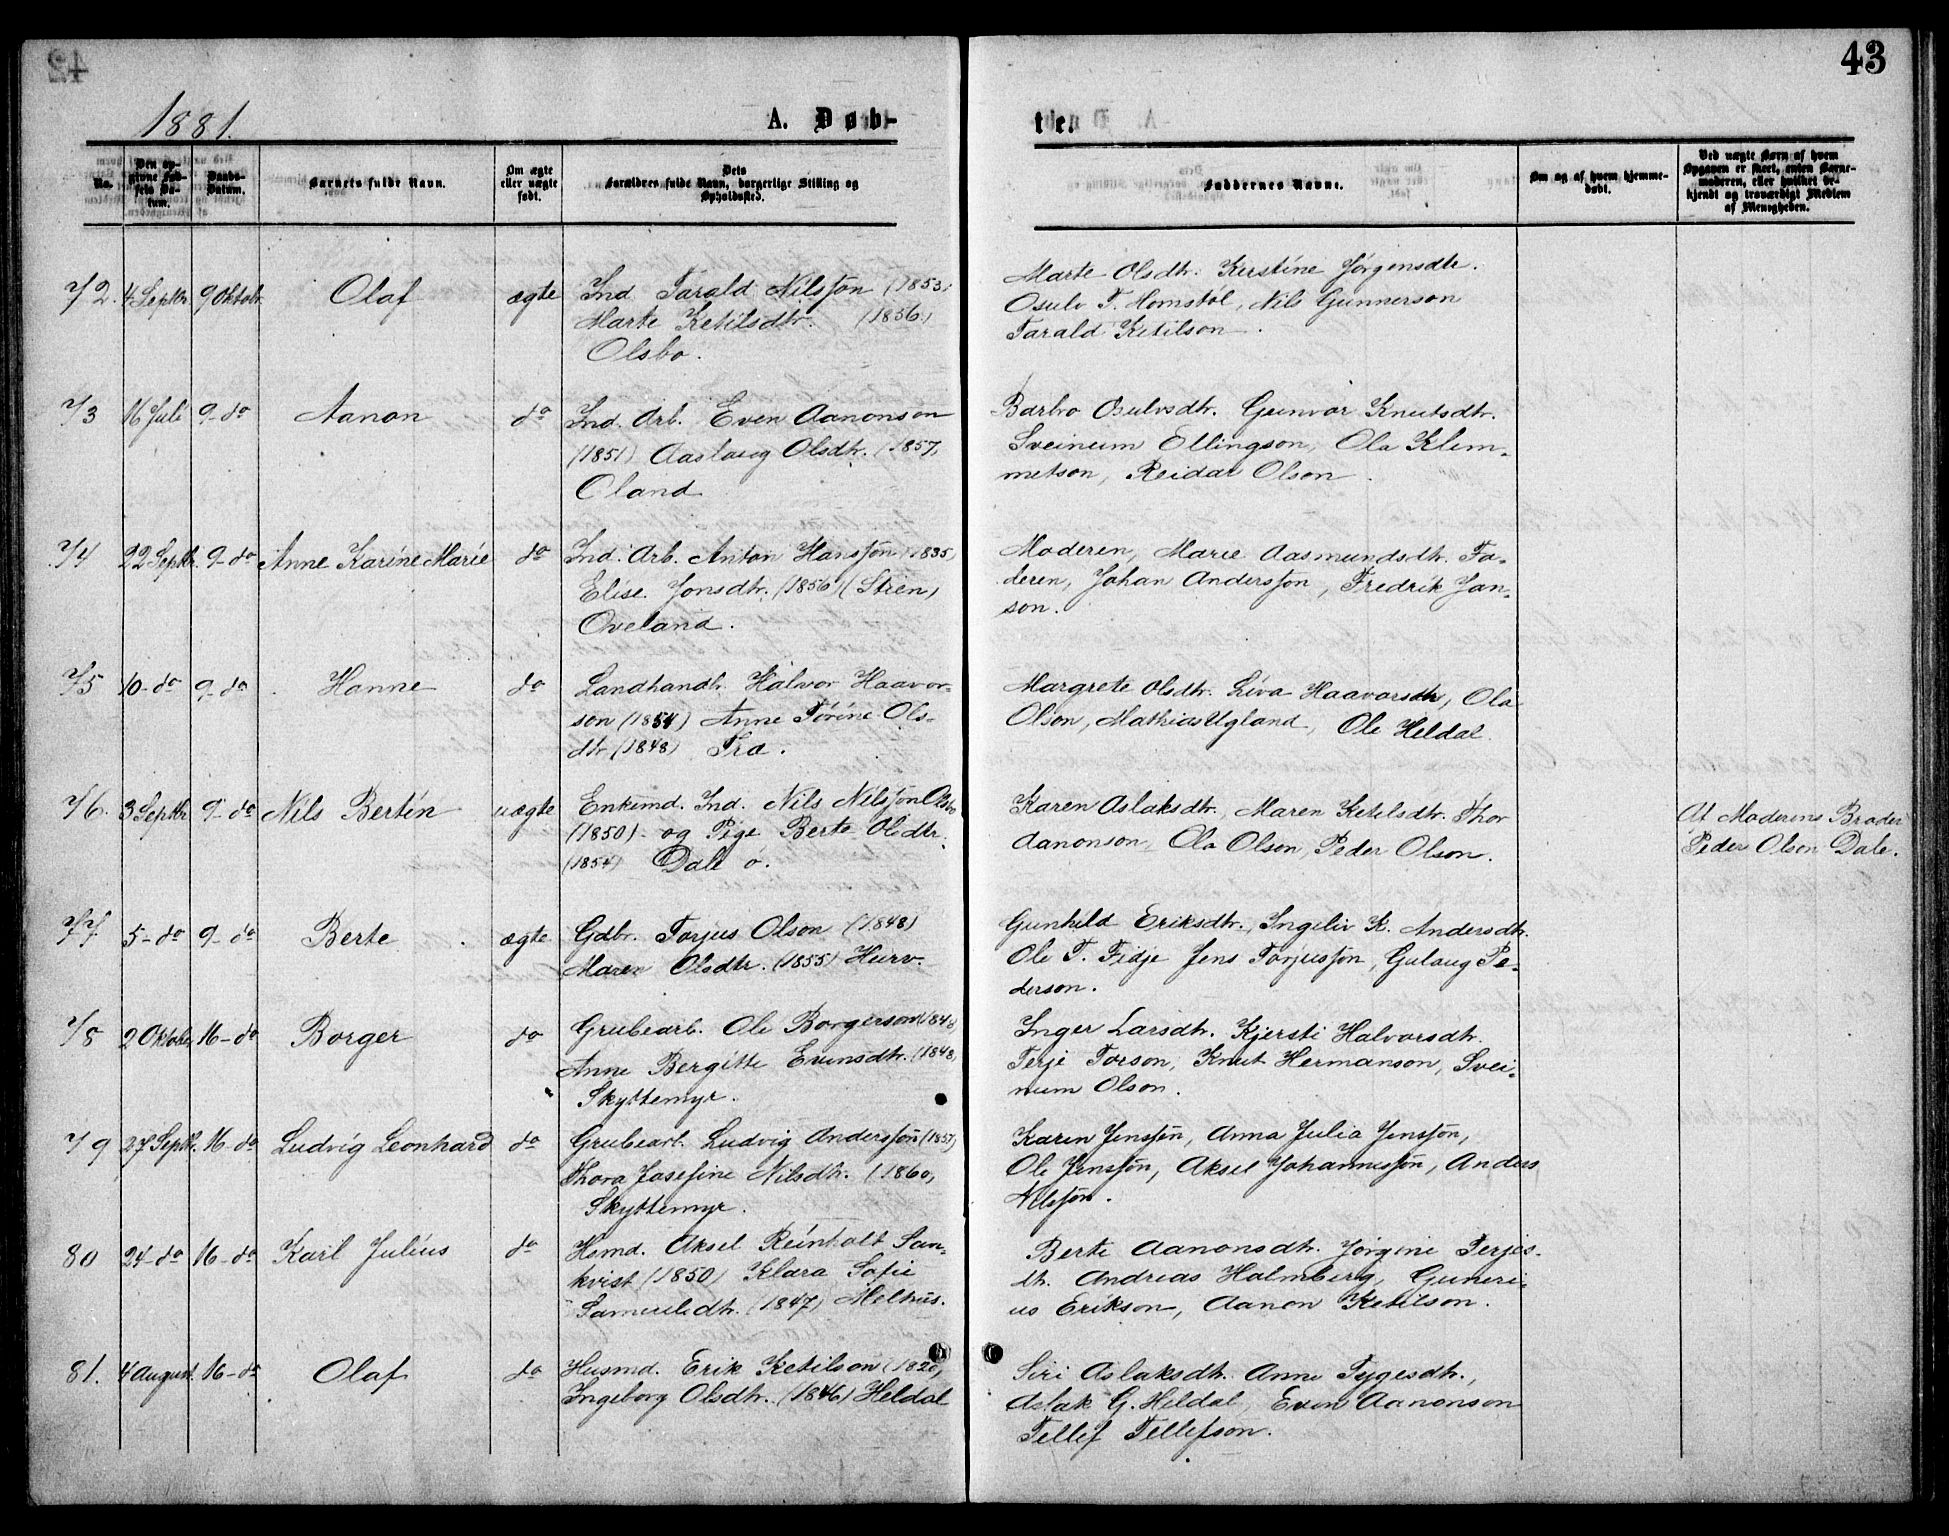 43
1881.
A. Døb-
te.
No.
Den op-
givne Fød-
sels Da-
tum.
Daabs-
Datum.
Barnets fulde Navn.
Om ægte
eller uægte
født.
Dets
Forældres fulde Navn, borgerlige Stilling og
Opholdssted.
Faddernes Navne.
Om og af hvem hjemme-
døbt.
Ved uægte Børn af hvem
Opgaven er skeet, enten Barne-
moderen, eller hvilket be-
kjendt og troværdigt Medlem
af Menigheden.
72. 4 Septbr. 9 Oktobr. Olaf ægte Ind. Tarald Nilssøn (1853)
Marte Ketilsdtr. (1856.)
Olsbo.
Marte Olsdtr. Kerstine Jørgensdtr.
Osulv T. Homstøl, Nils Gunnerson
Tarald Ketilson.
73 16 Juli 9 - do Aanon do Ind. Arb. Even Aanonson
(1851) Aaslaug Olsdtr. (1857)
Oland
Barbro Osulvsdtr. Gunvor Knutsdtr.
Sveinum Ellingson, Ola Klem-
metson, Reidar Olson.
74 22 Septbr. 9 - do Anne Karine Marie do Ind. Arb. Anton Hanssøn (1835)
Elise Jonsdtr. (1856) (Stien)
Oveland.
Moderen, Marie Aasmundsdtr. Fa-
deren, Johan Anderssøn, Fredrik Jan-
son.
75 10 - do 9 - do Hanne do Landhandlr. Halvor Haavor-
son (1854) Anne Torine Ols-
dtr (1848) Tra.
Margrete Olsdtr. Liva Haavorsdtr, Ola
Olson, Mathias Ugland, Ole Heldal
76. 3 Septbr 9 - do Nils Bertin uægte Enkemd. Ind. Nils Nilssøn Olsbo
(1850) - og Pige Berte Olsdtr.
(1854) Dale ø.
Karen Aslaksdtr., Maren Ketilsdtr. Thor
Aanonson, Ola Olson, Peder Olson.
At Moderens Broder
Peder Olson Dale.
77. 5 - do 9 - do Berte ægte Gdbr. Torjus Olson (1848)
Maren Olsdtr. (1855) Hurv.
Gunhild Eriksdtr., Ingeliv K. Andersdtr.
Ole T. Fidje Jens Torjussøn, Gulaug Pe-
derson.
78 2 Oktober 16 - do Borger do Grubearb. Ole Borgerson (1848)
Anne Bergitte Evensdtr. (1848)
Skyttemyr.
Inger Larsdtr. Kjersti Halvorsdtr.
Terje Torson, Knut Hermanson, Svei-
num Olson.
79 27 Septbr. 16 - do Ludvig Leonhard do Grubearb. Ludvig Anderssøn (1857)
Thora Josefine Nilsdtr. (1860)
Skyttemyr.
Karen Jenssøn, Anna Julia Jenssøn,
Ole Jenssøn, Aksel Johannessøn, Anders
Nilssøn.
80 24 - do 16 - do Karl Julius do Hsmd. Aksel Reinholt San-
kvist (1850) Klara Sofie
Samuelsdtr. (1847) Melhus.
Berte Aanonsdtr. Jørgine Terjes-
dtr. Andreas Halmberg, Guneri-
us Erikson, Aanon Ketilson.
81. 4 August. 16 - do Olaf do Husmd. Erik Ketilson (1820)
Ingeborg Olsdtr. (1846) Heldal
Siri Aslaksdtr. Anne Tygesdtr.,
Aslak G. Heldal, Even Aanonson
Tellef Tellefson.